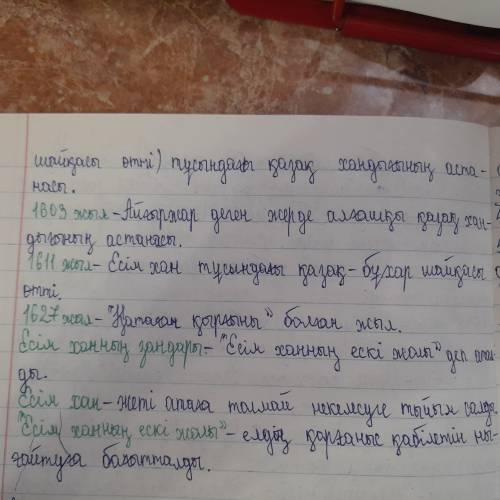 шайқасы өтті) тұсындағы қазақ хандығының аста-
насы.
1603 жыл - Айғыржар деген жерде алғашқы қазақ хан-
дығының астанасы.
1611 жыл - Есім хан тұсындағы қазақ - бұхар шайқасы
өтті.
1627 жыл - "Қатаған қырғыны" болған жыл.
Есім ханның заңдары - "Есім ханның ескі жолы" деп атал-
ды.
Есім хан - жеті атаға толмай некелесуге тыйым салды.
"Есім ханның ескі жолы" - елдің қорғаныс қабілетін ны-
ғайтуға бағытталды.